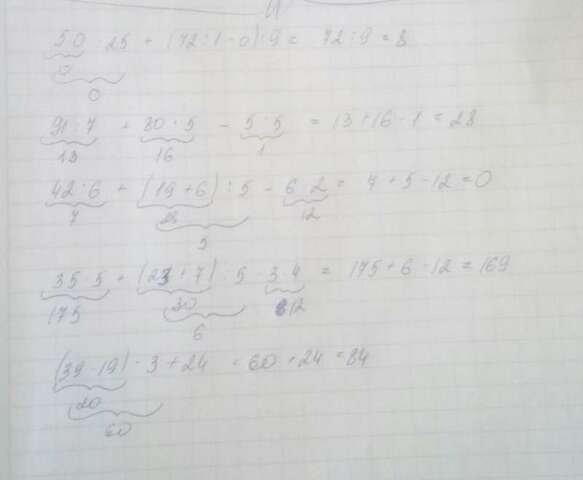 5·0·25 + (72:1-0):9 = 72:9 = 8
0
0
91:7 + 80:5 - 5:5 = 13+16-1 = 28
13 16 1
42:6 + (19+6):5 - 6·2 = 7+5-12 = 0
7 25 12
5
35·5 + (23+7):5 - 3·4 = 175+6-12 = 169
175 30 12
6
(39-19)·3+24 = 60+24 = 84
20
60